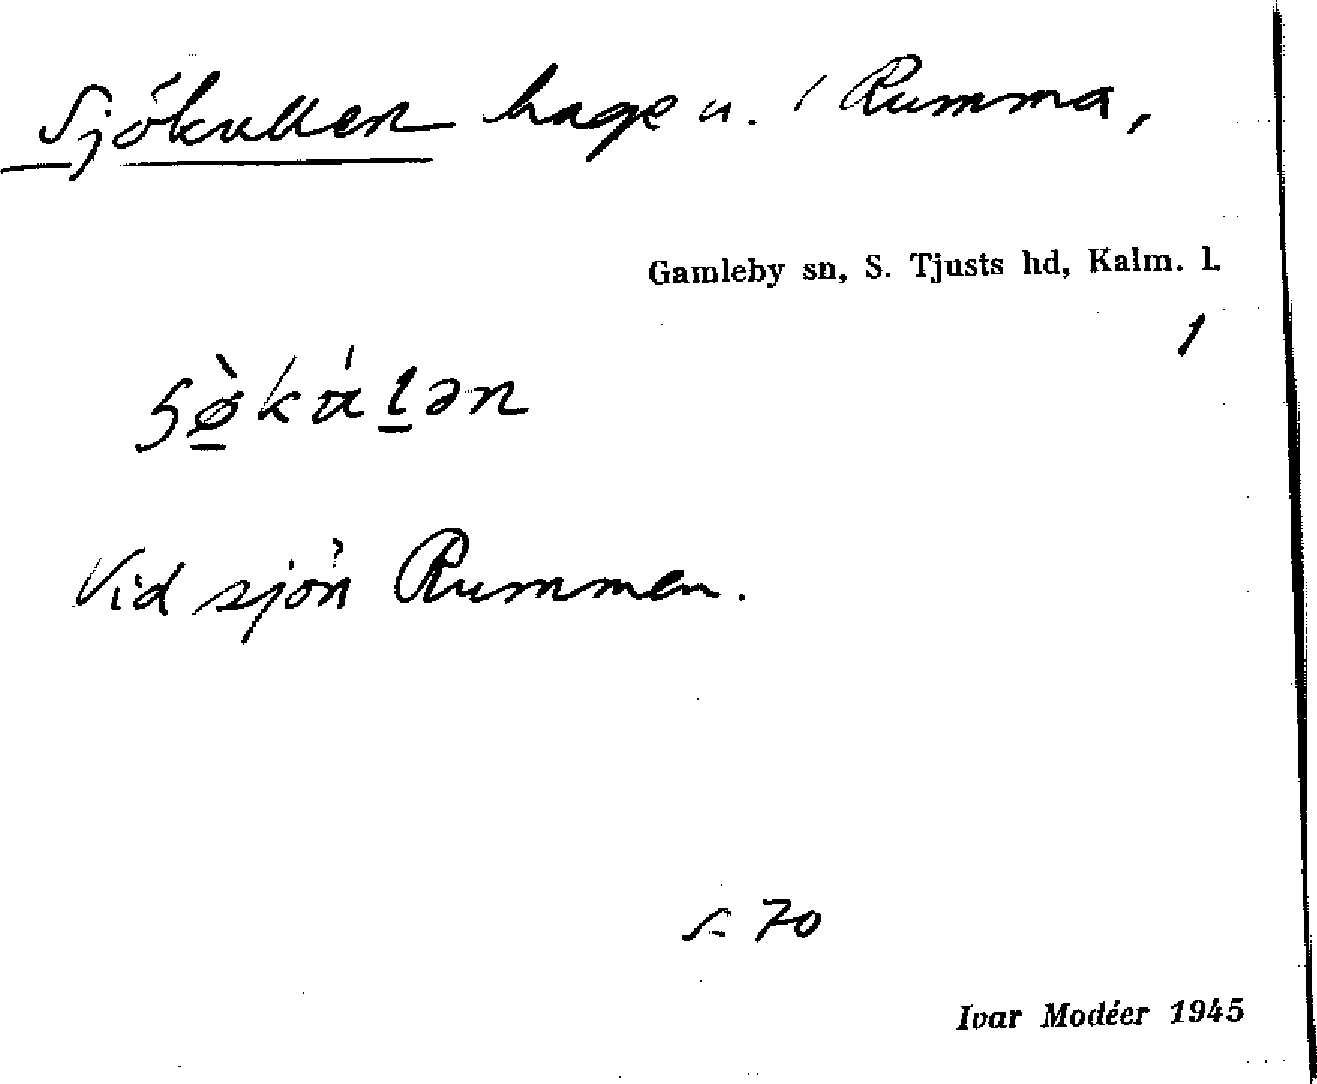 Sjökullen hage n. i Rumma,
Gamleby sn, S. Tjusts hd, Kalm. l.
1
Vid sjön Rummen.
s. 70
Ivar Modéer 1945